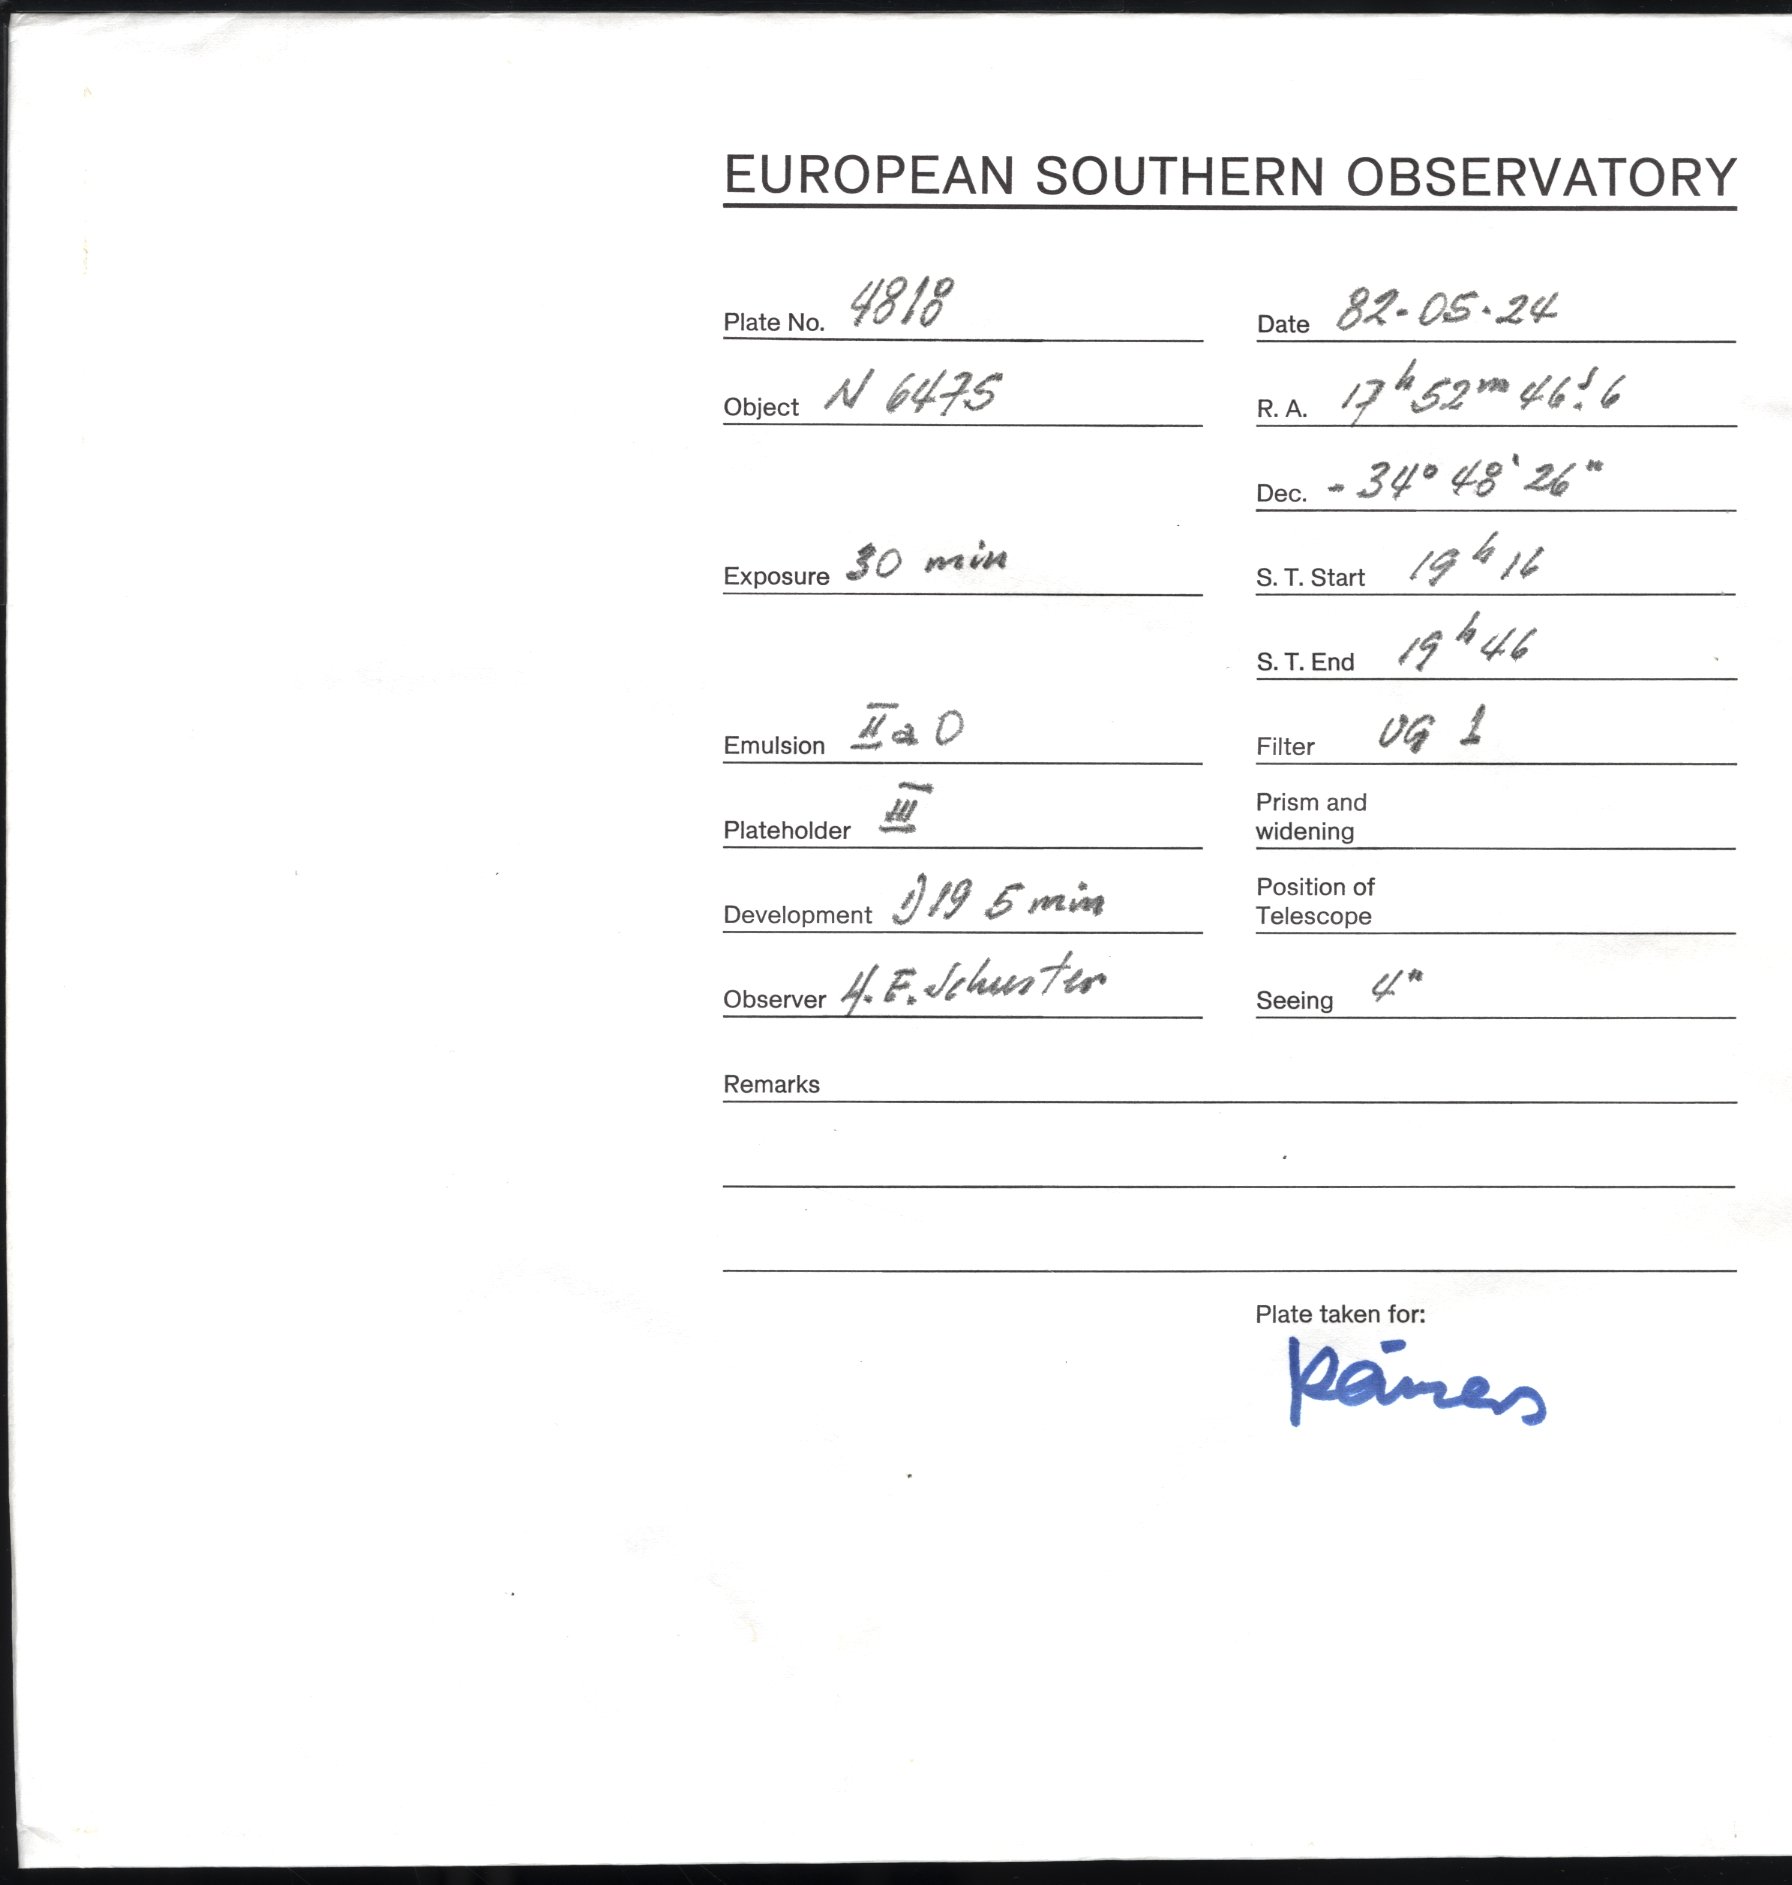 EUROPEAN SOUTHERN OBSERVATORY
Plate No. 4818
Date 82-05-24
Object N 6475
R. A. 17h 52m 46s.6
Dec. - 34° 48' 26"
Exposure 30 min
S. T. Start 19h 16
S. T. End 19h 46
Emulsion IIa O
Filter UG 1
Plateholder III
Prism and
widening
Development D19 5 min
Position of
Telescope
Observer H.E. Schuster
Seeing 4"
Remarks
Plate taken for: